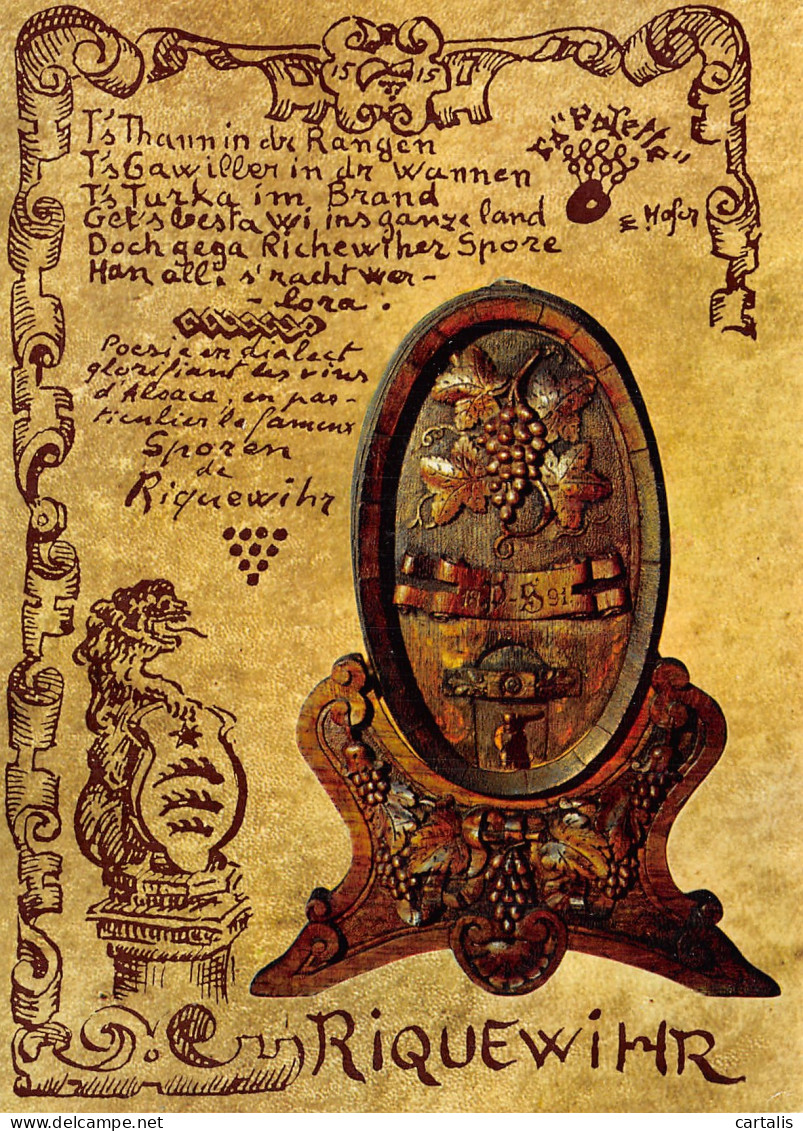 15 15
T's Thann in dr Rangen
T's Gawiller in dr Wannen
T's Turka im Brand
Get's besta Wi ins ganze land
Doch gega Richewiher Spore
Han all's s'nacht wer-
- lora.
"La Palette"
E Hofer
Poesie en dialect
glorifiant les vins
d'Alsace, en par-
ticulier le fameux
Sporen
de
Riquewihr
18 D-S 91
RIQUEWIHR
delcampe.net
cartalis